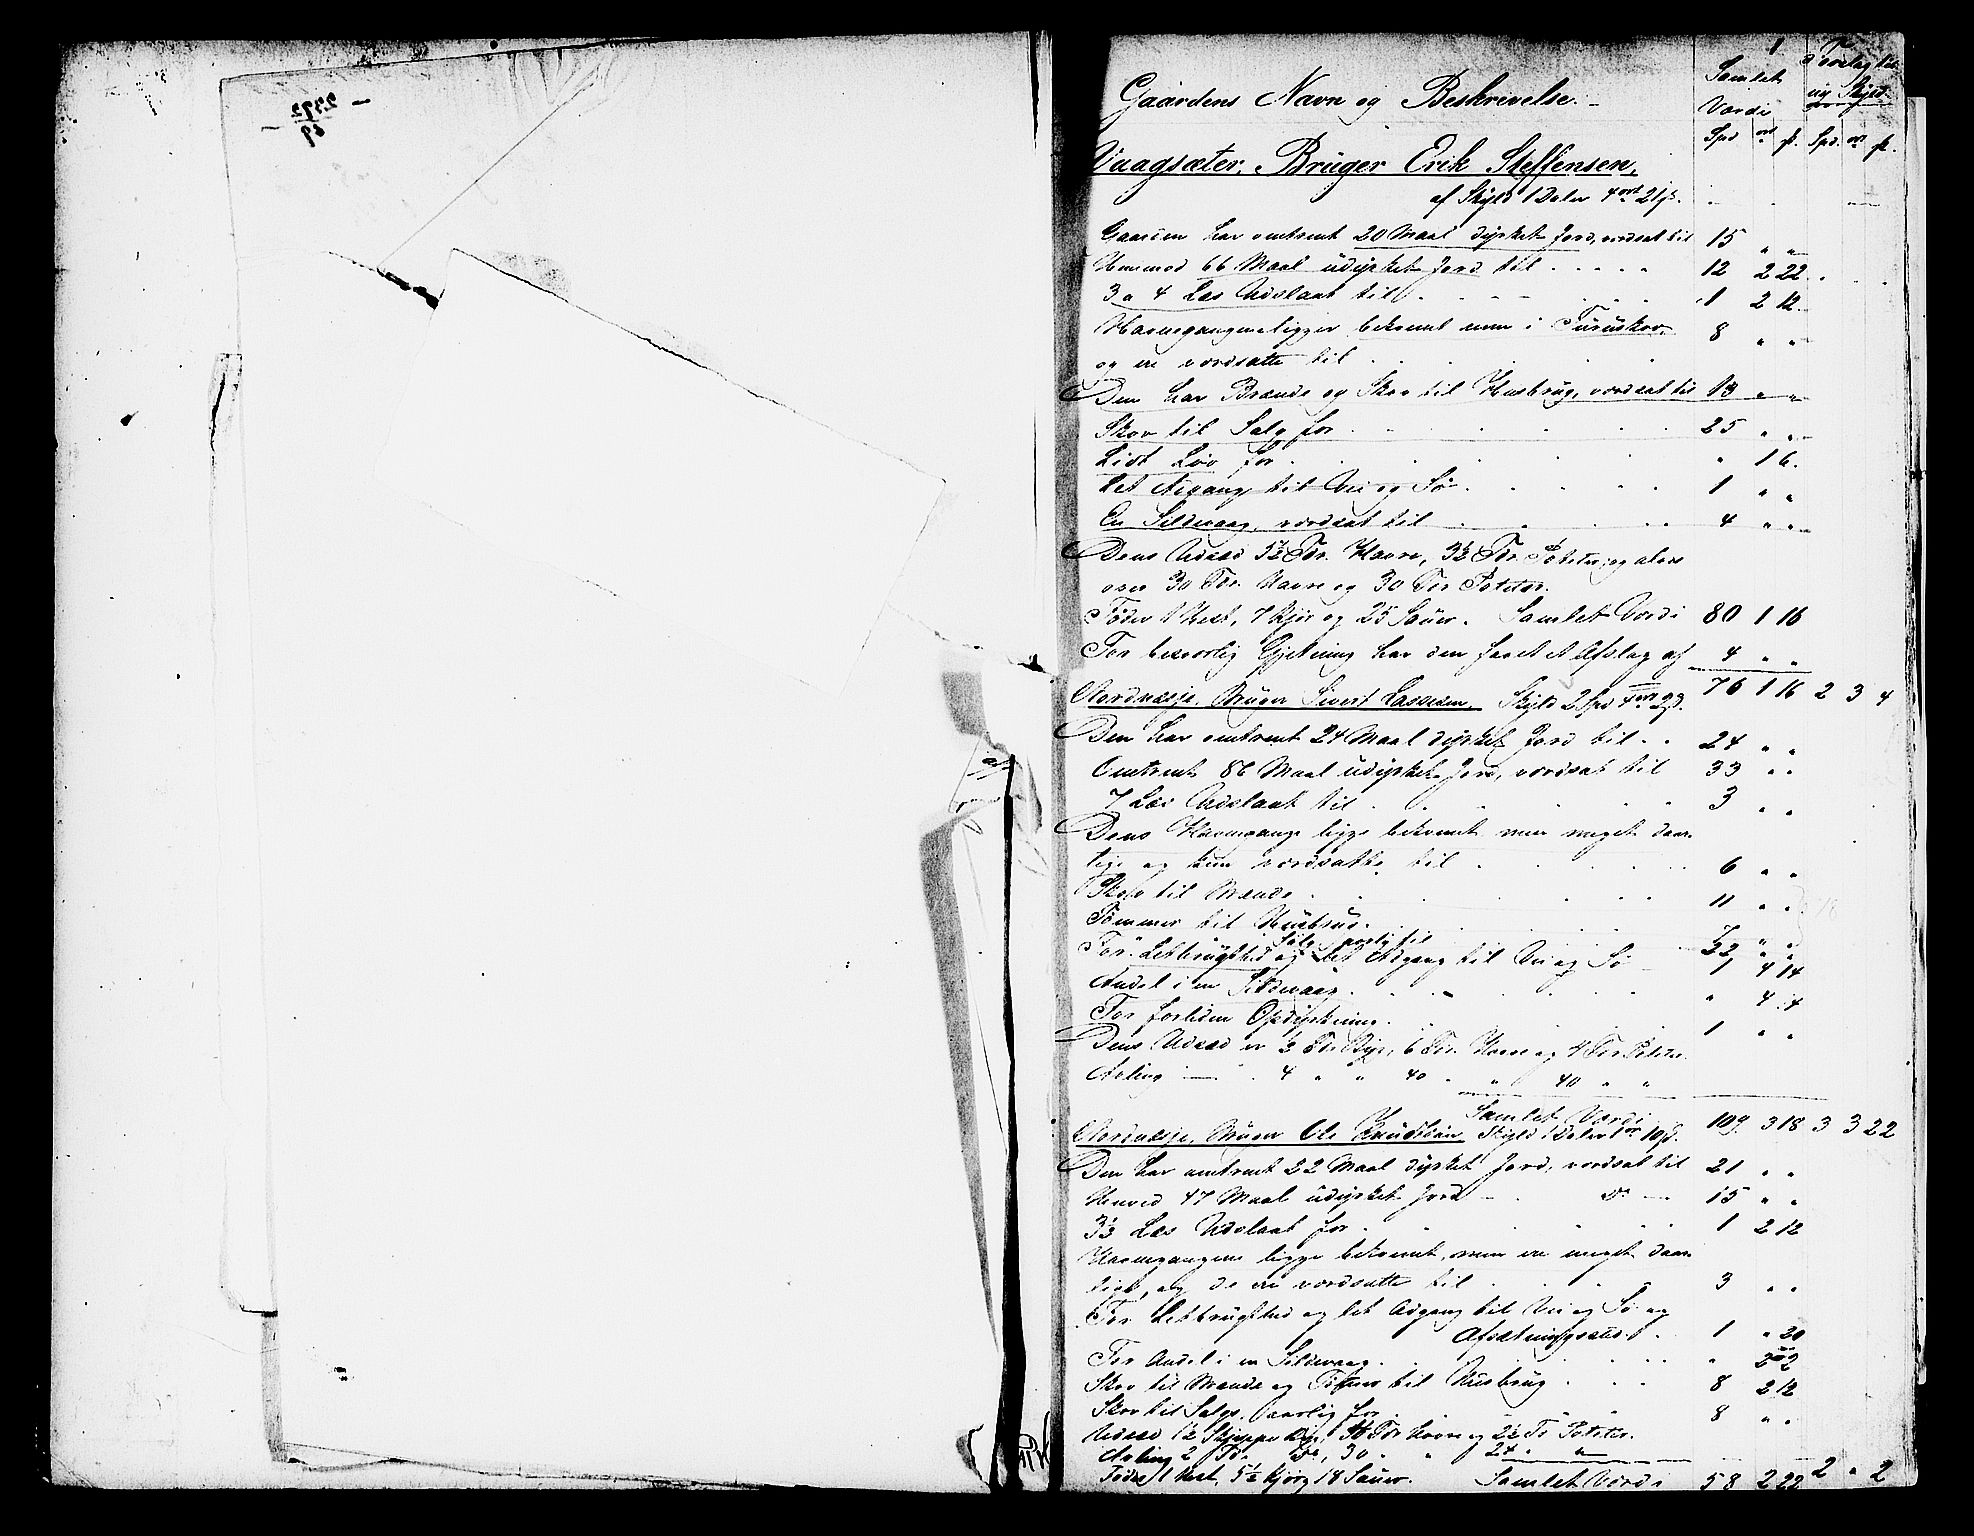 1
Gaardens Navn og Beskrivelse.
Samlet Værdi
Forslag til ny Skyld.
Spd ort ß. Spd. ort ß.
Vaagsæter, Bruger Erik Steffensen,
af Skyld 1 Daler 4 ort 21 ß.
Gaarden har omtrent 20 Maal dyrket Jord, værdsat til 15 " "
Henimod 66 Maal udyrket Jord til 12 2 22
3 a 4 Læs Udslaat til 1 2 12
Havnegangene ligger bekvemt men i Furuskov, 8 " "
og ere værdsatte til
Den har Brænde og Skov til Husbrug, værdsat til 13 " "
Skov til Salg for 25 " "
Lidt Løv for " 1 6.
Let Adgang til Vei og Sø 1 " "
En Sildevaag, værdsat til 4 " "
Dens Udsæd 5½ Tdr. Havre, 3½ Tdr. Poteter, og avles
over 30 Tdr. Havre og 30 Tdr Poteter.
Føder 1 Hest, 7 Kjør og 25 Sauer. Samlet Værdi 80 1 16
For besværlig Gjetning har den faaet et Afslag af 4 " "
76 1 16 2 3 4
Nordvasje, Bruger Sivert Lassesen, Skyld 2 Spd 4 ort 2 ß.
Den har omtrent 24 Maal dyrket Jord til 24 " "
Omtrent 86 Maal udyrket Jord, værdsat til 33 " "
7 Læs Udslaat til 3 " "
Dens Havnegange ligge bekvemt men meget daar
lige og kun værdsatte til 6 " "
Skov til Brænde 11 " "
Tømmer til Husbrug. 7 " "
Salg aarlig til 22 " "
For Letbrugthed og let Adgang til Vei og Sø 1 4 14
Andel i en Sildevaag " 4 4
For forliden Opdyrkning 1 " "
Dens Udsæd er ½ Tde Byg, 6 Tdr. Havre og 4 Tdr Poteter
Avling 4 " " 40 " " 40 " "
Samlet Værdi 109 3 18 3 3 22
Nordvasje, Bruger Ole Knudssen Skyld 1 Daler 1 ort 10 ß.
Den har omtrent 22 Maal dyrket Jord, værdsat til 21 " "
Henved 47 Maal udyrket Jord do 15 " "
3½ Læs Udslaat for 1 2 12
Havnegangene ligge bekvemt, men ere meget daar
lige, og de ere værdsatte til 3 " "
For Letbrugthed og let Adgang til Vei og Sø og
Afsætningssted 1 " 20
For Andel i en Sildevaag " 2 2
Skov til Brænde og Tømmer til Husbrug 8 2 12
Skov til Salgs, aarlig for 8 " "
Udsæd 1½ Skjeppe Byg, Tdr Havre og 2½ Td Poteter.
Avling 2 Tdr Do, 30 " " 24 " "
Føder 1 Hest, 5½ Kjør og 18 Sauer. Samlet Værdi 58 2 22 2 " 2